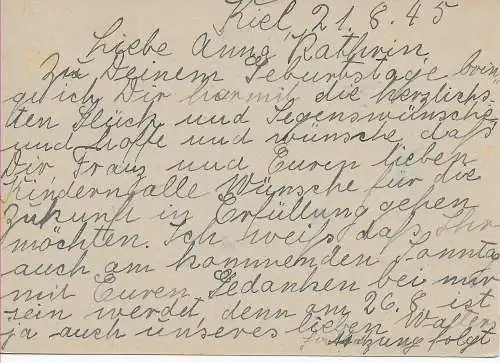 Kiel, 21.8.45
Liebe Anna Kathrin,
Zu Deinem Geburtstage brin
ge ich Dir hiermit die herzlichs-
ten Glück und Segenswünsche
und hoffe und wünsche daß
Dir, Franz und Euren lieben
Kindern alle Wünsche für die
Zukunft in Erfüllung gehen
möchten. Ich weiß daß Ihr
auch am kommenden Sonntag
mit Euren Gedanken bei mir
sein werdet, denn am 26.8. ist
ja auch unseres lieben
Fortsetzung folgt